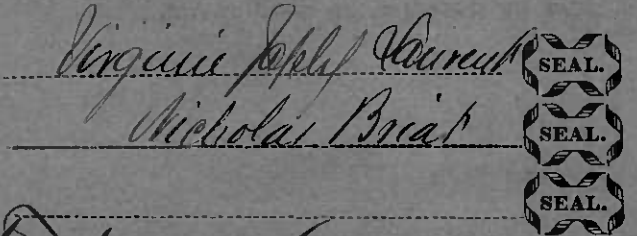 Virginie Joseph Laurent SEAL.
Nicholas Briat SEAL.
SEAL.